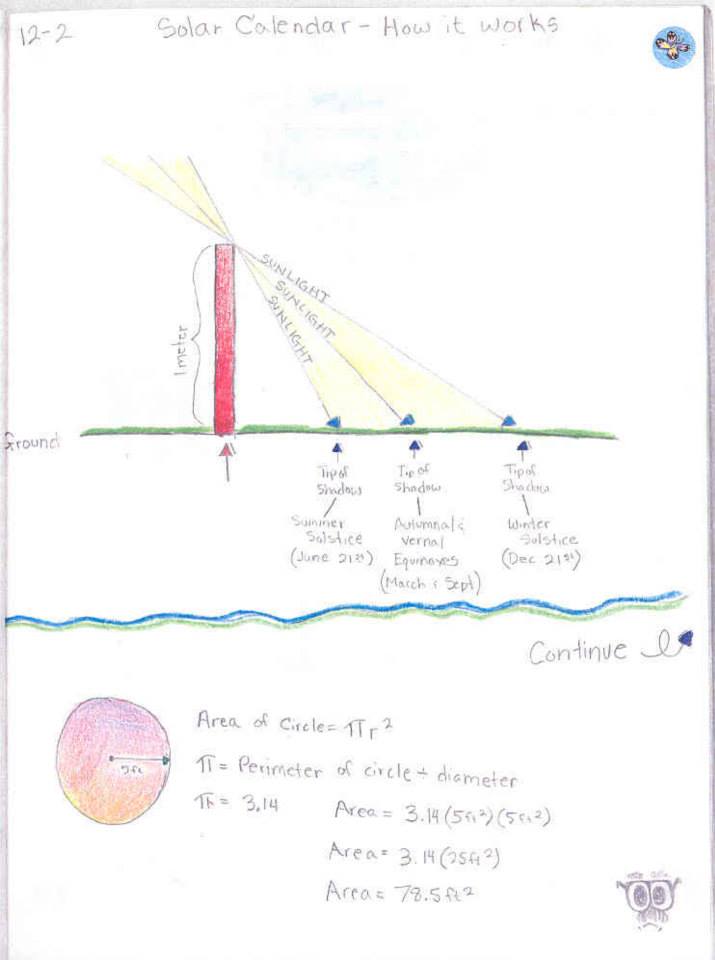 12-2
Solar Calendar - How it works
SUNLIGHT
SUNLIGHT
SUNLIGHT
1 meter
Ground
Tip of
Shadow
Summer
Solstice
(June 21st)
Tip of
Shadow
Autumnal &
Vernal
Equinoxes
(March & Sept)
Tip of
Shadow
Winter
Solstice
(Dec 21st)
Continue
5ft
Area of Circle = πr²
π = Perimeter of circle ÷ diameter
π = 3.14
Area = 3.14 (5ft²)(5ft²)
Area = 3.14 (25ft²)
Area = 78.5ft²